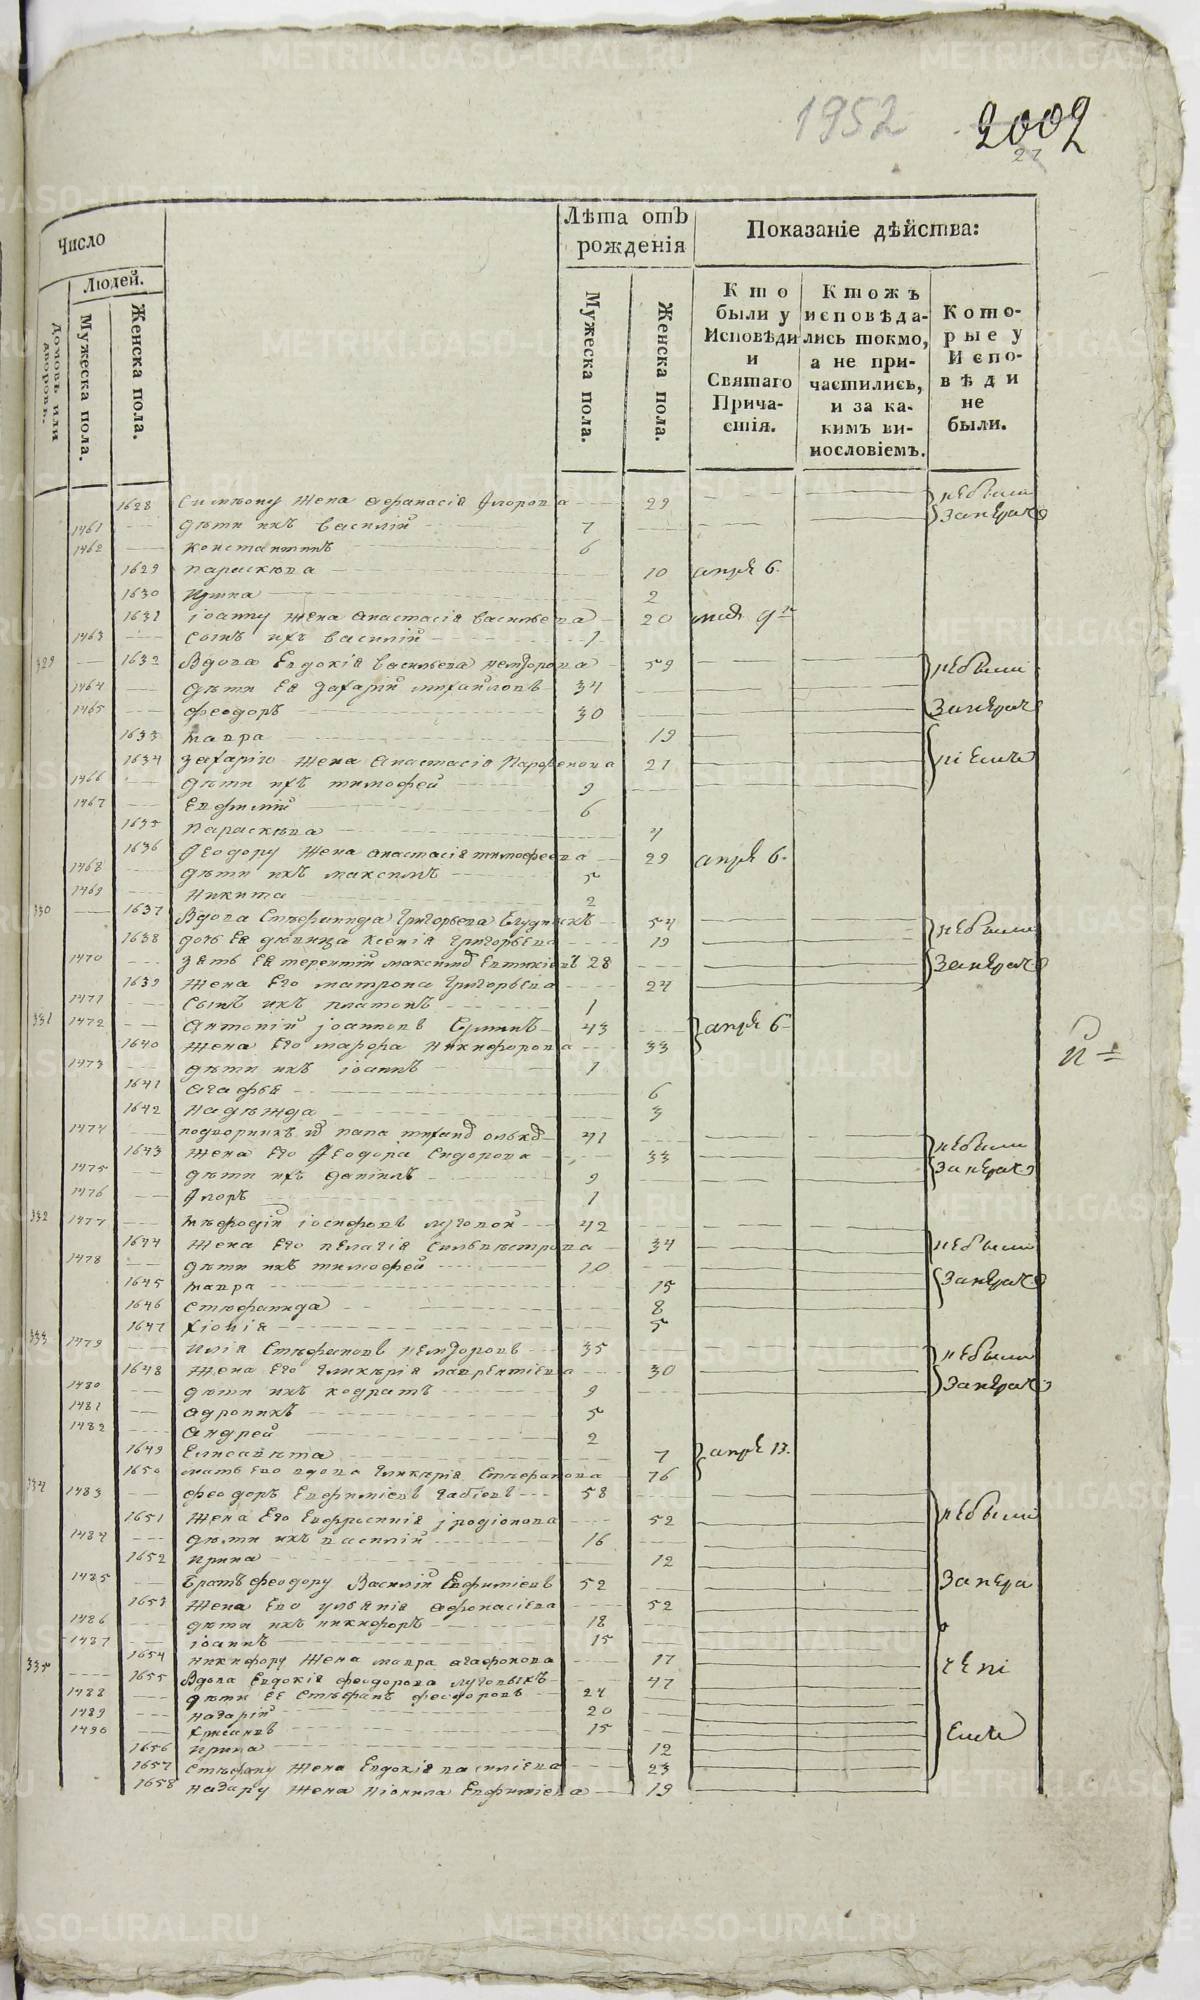 1952 2002
27
Число
Людей.
Домовъ или дворовъ.
Мужеска пола.
Женска пола.
Лѣта отъ рожденія
Мужеска пола.
Женска пола.
Показаніе дѣйства:
Кто были у Исповѣди и Святаго Причастія.
Ктожъ исповѣдались токмо, а не причастились, и за какимъ винословіемъ.
Которые у Исповѣди не были.
1628 Симеону жена Афанасія Флорова 29 небыли
1461 дѣти ихъ Василій 7
1462 Константинъ 6
1629 Параскева 10 апрѣ 6.
1630 Ирина 2
1631 Іоанну жена Анастасія Васильева 20
1463 сынъ ихъ Василій 1
329 1632 Вдова Евдокія Васильева 59 небыли
1464 дѣти Ея Захарій Михайловъ 34
1465 Феодоръ 30
1633 Мавра 19
1634 Захарію жена Анастасія Парфенова 27
1466 дѣти ихъ Тимофей 9
1467 Евфимій 6
1635 Параскева 4
1636 Феодору жена Анастасія Тимофеева 29 апрѣ 6.
1468 дѣти ихъ Максимъ 5
1469 Никита 2
330 1637 Вдова Стефанида Григорьева 54 небыли
1638 дочь Ея дѣвица Ксенія Григорьева 19
1470 зять Ея Терентій 28
1639 жена Его Матрона Григорьева 24
1471 сынъ ихъ Платонъ 1
331 1472 Антоній Іоанновъ 43 апрѣ 6
1640 жена Его Марфа Никифорова 33
1473 дѣти ихъ Іоаннъ 1
1641 Агафья 6
1642 Надежда 3
1474 подворникъ 41 небыли
1643 жена Его Феодора Сидорова 33
1475 дѣти ихъ Даніилъ 9
1476 Флоръ 1
332 1477 Мефодій Іосифовъ Луговой 42
1644 жена Его Пелагія Сильвестрова 34 небыли
1478 дѣти ихъ Тимофей 10
1645 Мавра 15
1646 Стефанида 8
1647 Хіонія 5
333 1479 Илія Стефановъ 35 небыли
1648 жена Его Гликерія Лаврентіева 30
1480 дѣти ихъ Кодратъ 9
1481 Адроникъ 5
1482 Андрей 2
1649 Елисавета 7 апрѣ 13.
1650 мать Его вдова Гликерія Стефанова 76
334 1483 Феодоръ Евфиміевъ 58 небыли
1651 жена Его Евфросинія Іродіонова 52
1484 дѣти ихъ Василій 16
1652 Ирина 12
1485 Братъ Феодору Василій Евфиміевъ 52
1653 жена Его Ульянія Афонасіева 52
1486 дѣти ихъ Никифоръ 18
1487 Іоаннъ 15
1654 Никифору жена Мавра Агафонова 17
335 1655 Вдова Евдокія Феодорова Луговыхъ 47
1488 дѣти Ее Стефанъ Феодоровъ 24
1489 Назарій 20
1490 15
1656 Ирина 12
1657 Стефану жена Евдокія Василіева 23
1658 Назару жена Неонила Евфиміева 19